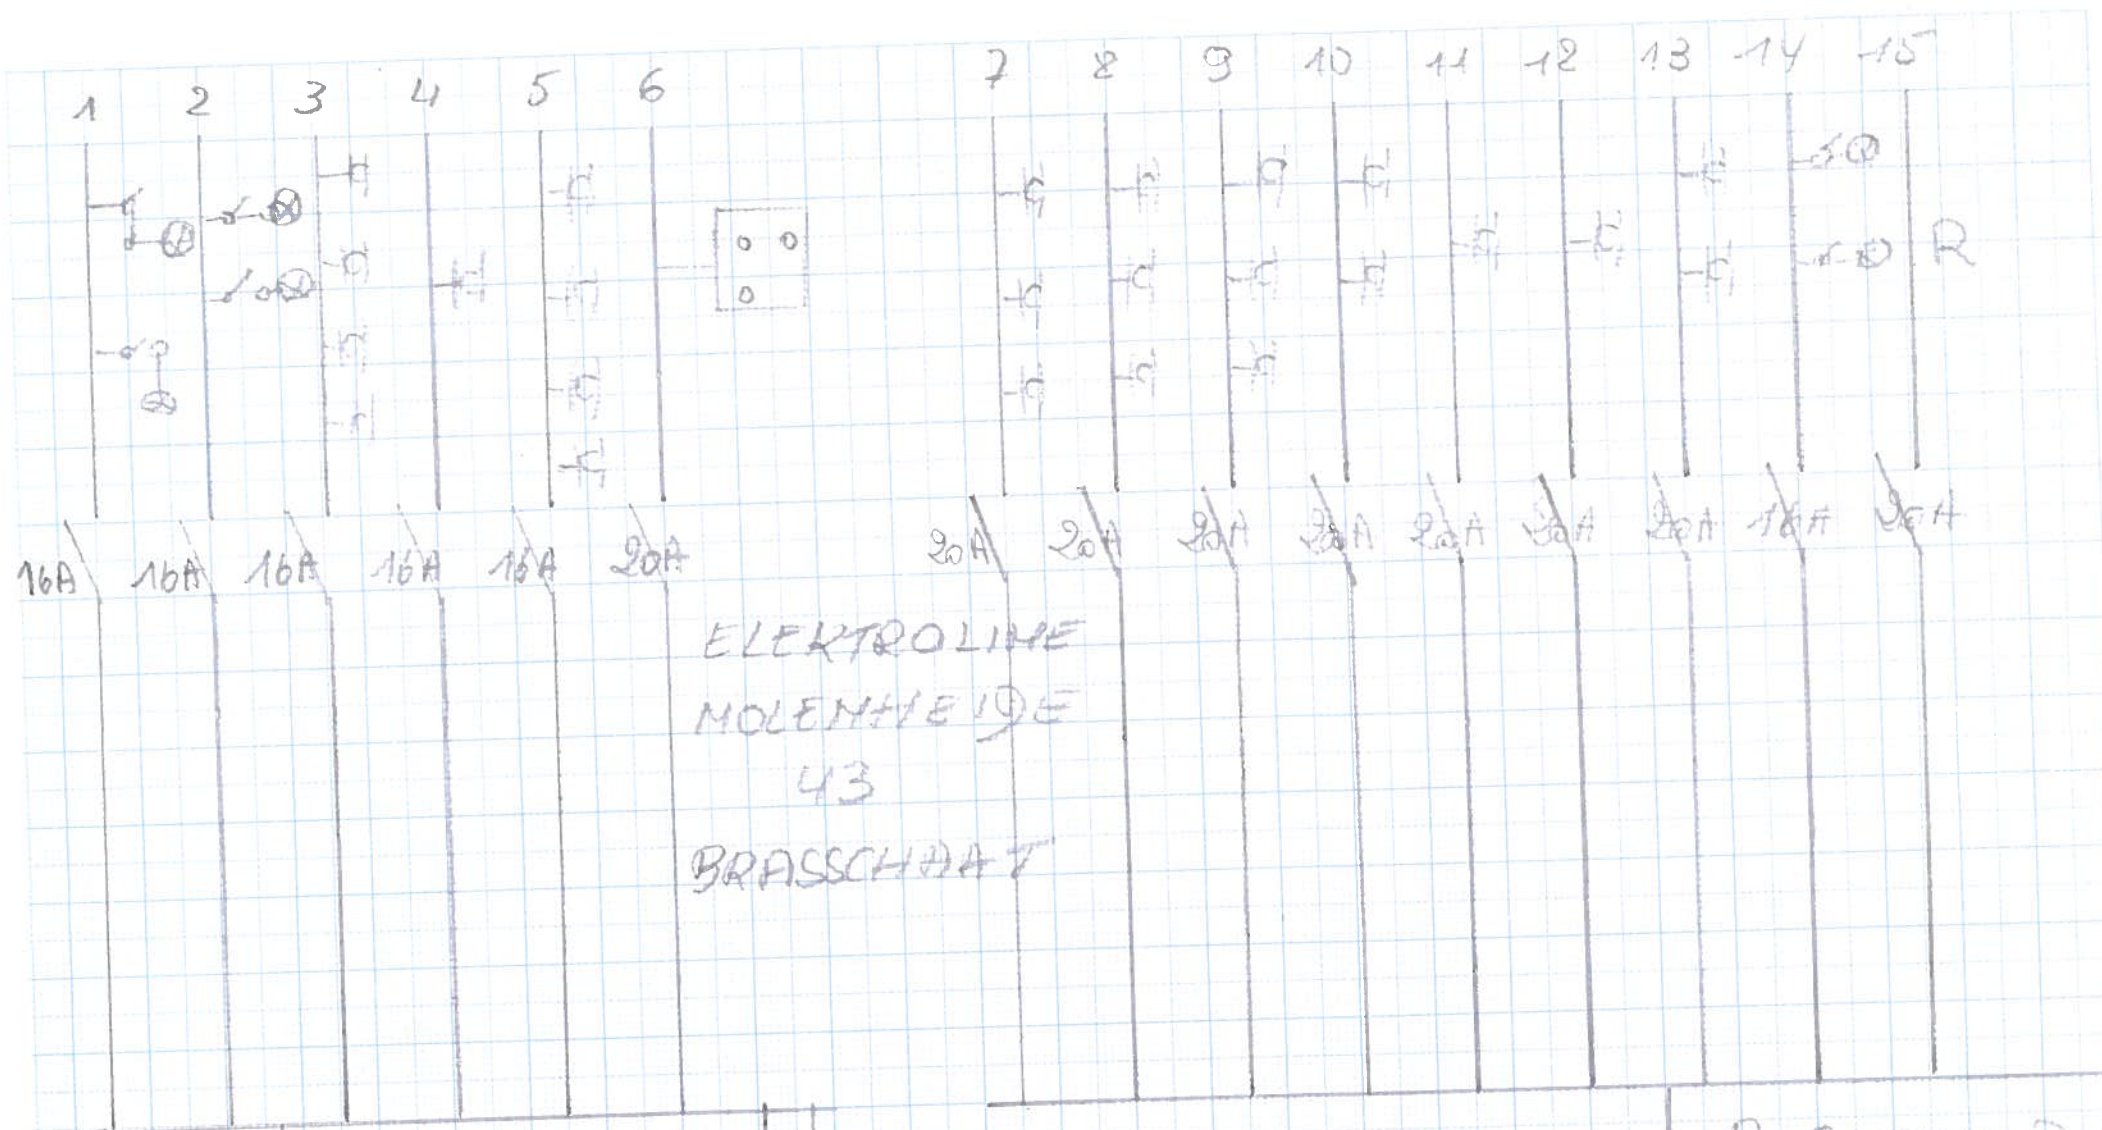 1 2 3 4 5 6 7 8 9 10 11 12 13 14 15
R
16A 16A 16A 16A 16A 20A 20A 20A 20A 20A 20A 20A 20A 16A 20A
ELEKTROLINE
MOLENHEIDE
43
BRASSCHAAT